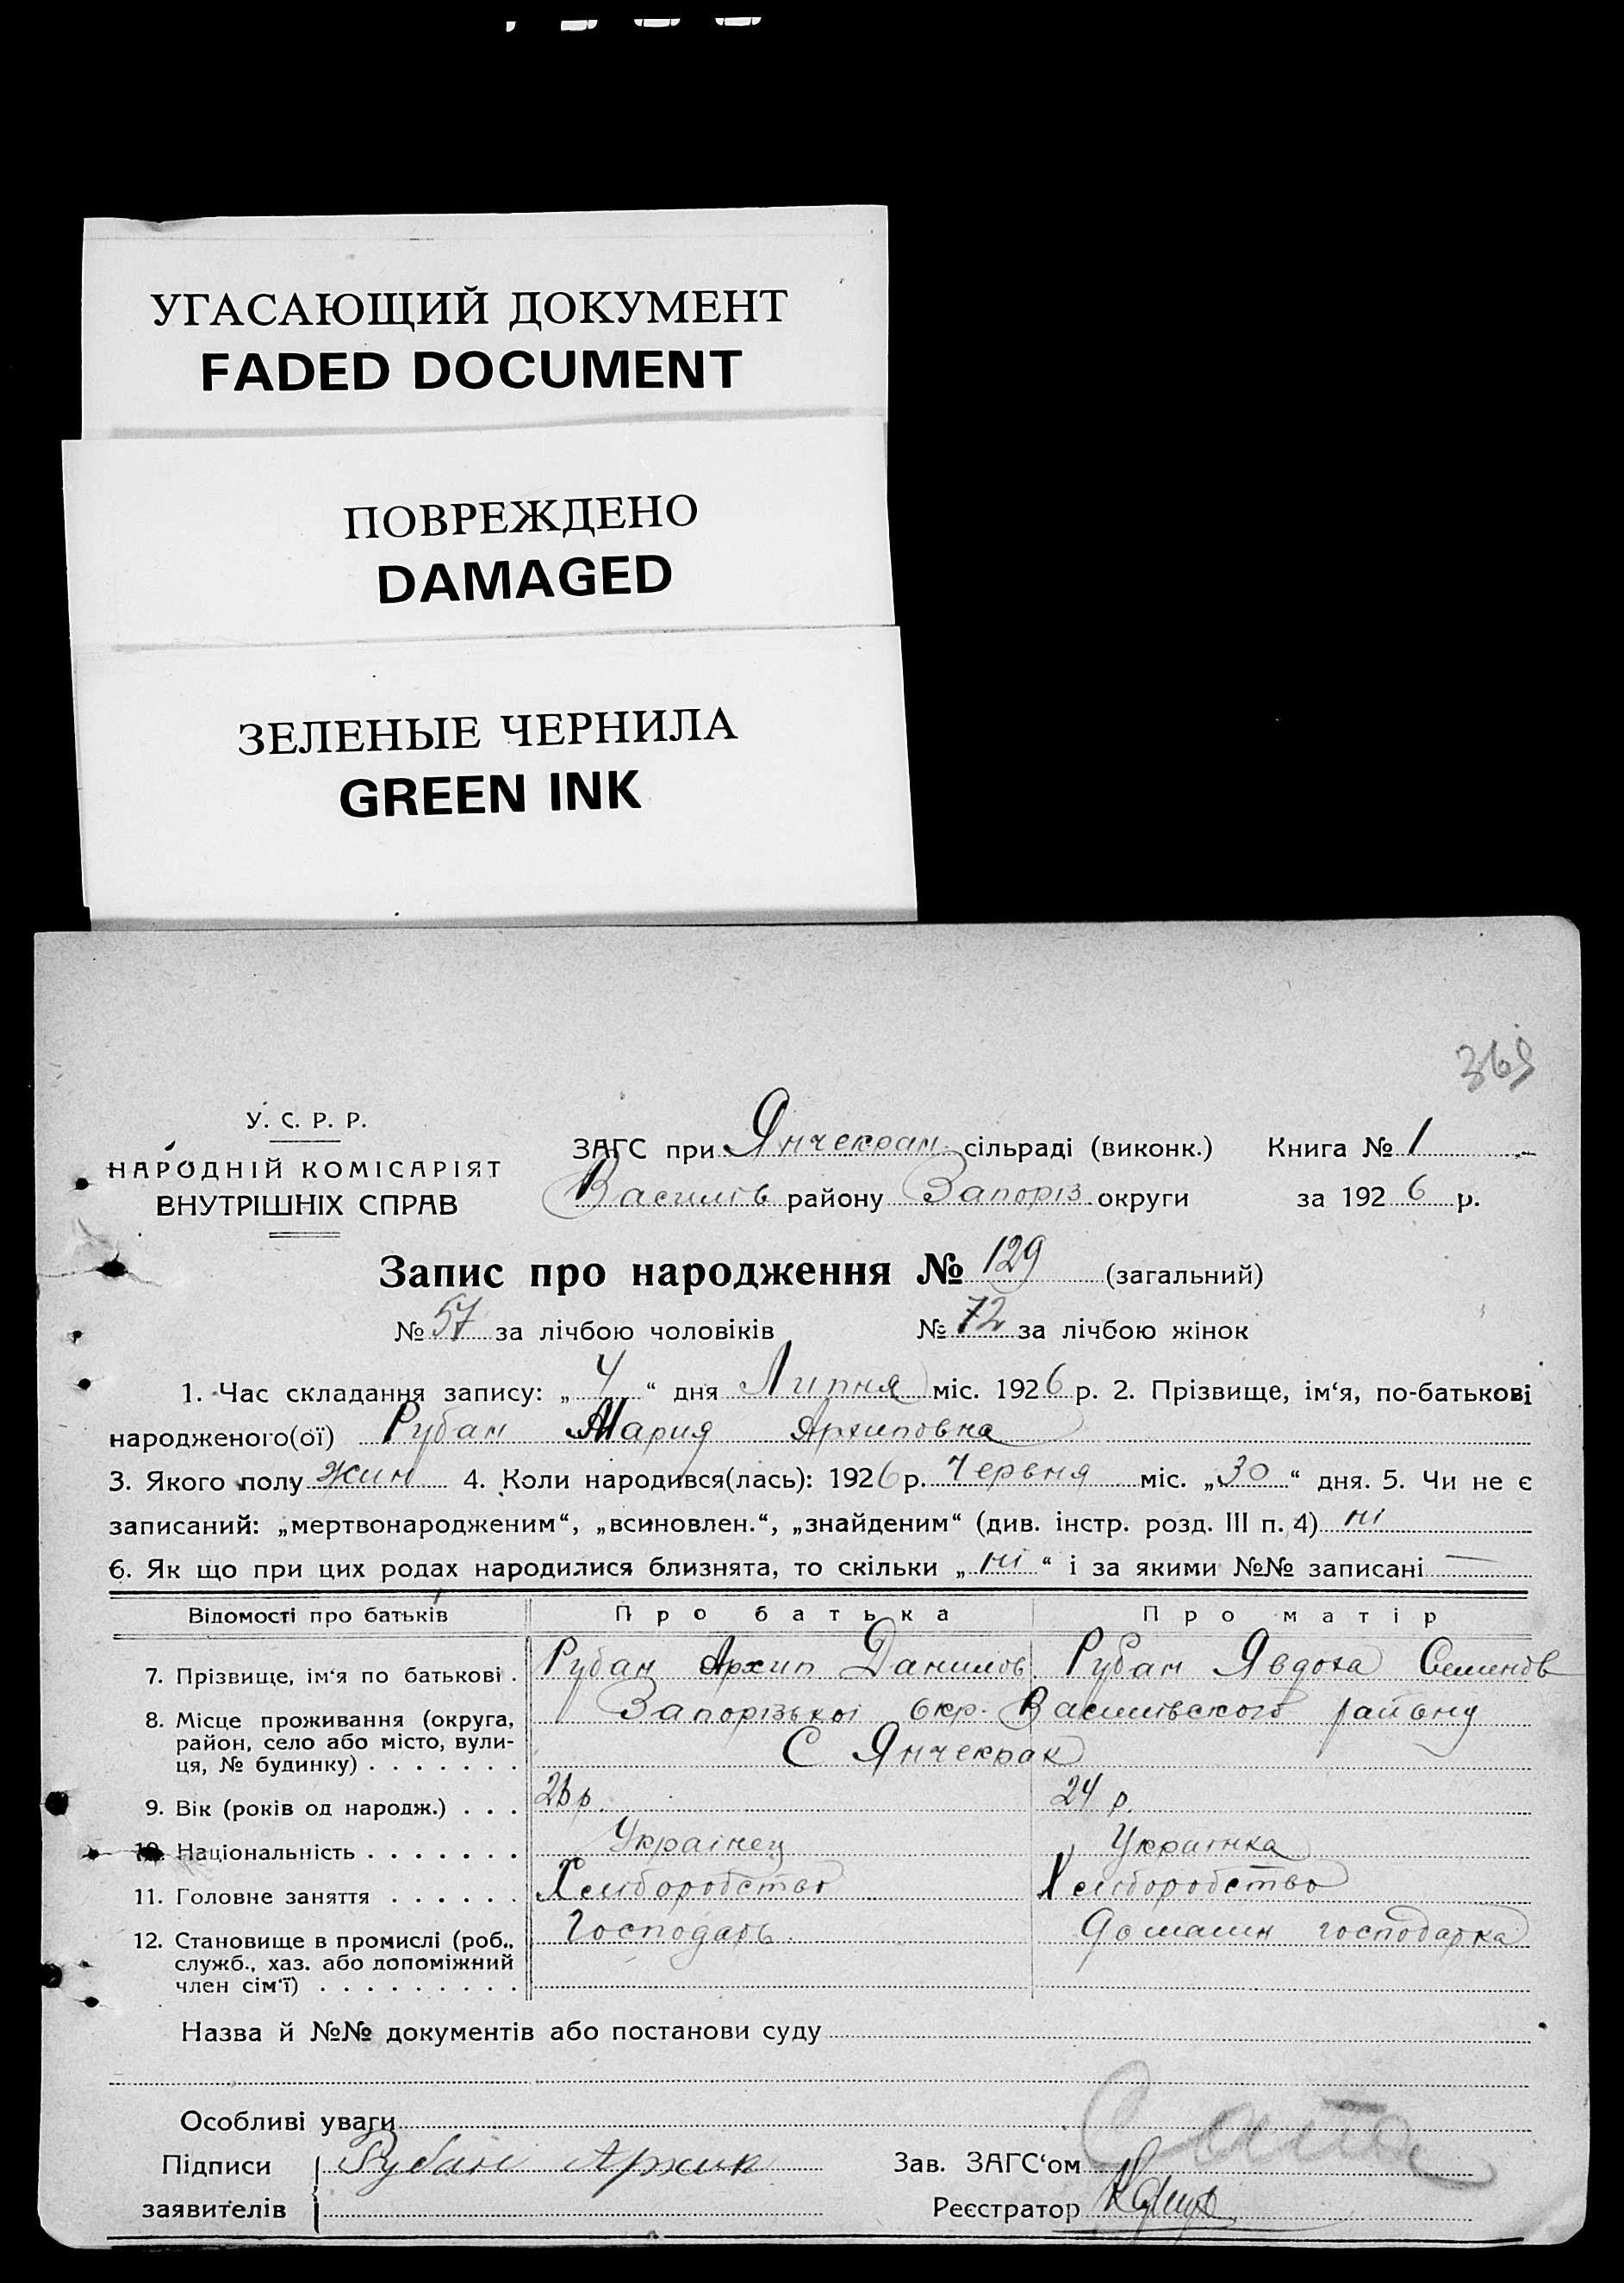 УГАСАЮЩИЙ ДОКУМЕНТ
FADED DOCUMENT
ПОВРЕЖДЕНО
DAMAGED
ЗЕЛЕНЫЕ ЧЕРНИЛА
GREEN INK
369
У. С. Р. Р.
НАРОДНІЙ КОМІСАРІЯТ
ВНУТРІШНІХ СПРАВ
ЗАГС при Янчекрак сільраді (виконк.) Книга № 1
Василів району Запоріз округи за 1926 р.
Запис про народження № 129 (загальний)
№ 57 за лічбою чоловіків № 72 за лічбою жінок
1. Час складання запису: „ 4 “ дня Липня міс. 1926 р. 2. Прізвище, ім‘я, по-батькові
народженого(ої) Рубан Мария Архиповна
3. Якого полу жин 4. Коли народився(лась): 1926 р. Червня міс. „30“ дня. 5. Чи не є
записаний: „мертвонародженим“, „всиновлен.“, „знайденим“ (див. інстр. розд. III п. 4) ні
6. Як що при цих родах народилися близнята, то скільки „ ні “ і за якими №№ записані —
Відомості про батьків Про батька Про матір
7. Прізвище, ім‘я по батькові . Рубан Архип Данилов Рубан Явдоха Семенов
8. Місце проживання (округа, район, село або місто, вули-ця, № будинку) . . . . . . . Запорізькоі Окр. Василівского району
С Янчекрак
9. Вік (років од народж.) . . . 26 р. 24 р.
10. Національність . . . . . . . Украінец Украінка
11. Головне заняття . . . . . . Хлиборобство Хлиборобство
12. Становище в промислі (роб., служб., хаз. або допоміжний член сім‘ї) . . . . . . . . . Господарь Домашн господарка
Назва й №№ документів або постанови суду
Особливі уваги
Підписи заявителів Рубан Архип
Зав. ЗАГС‘ом
Реєстратор